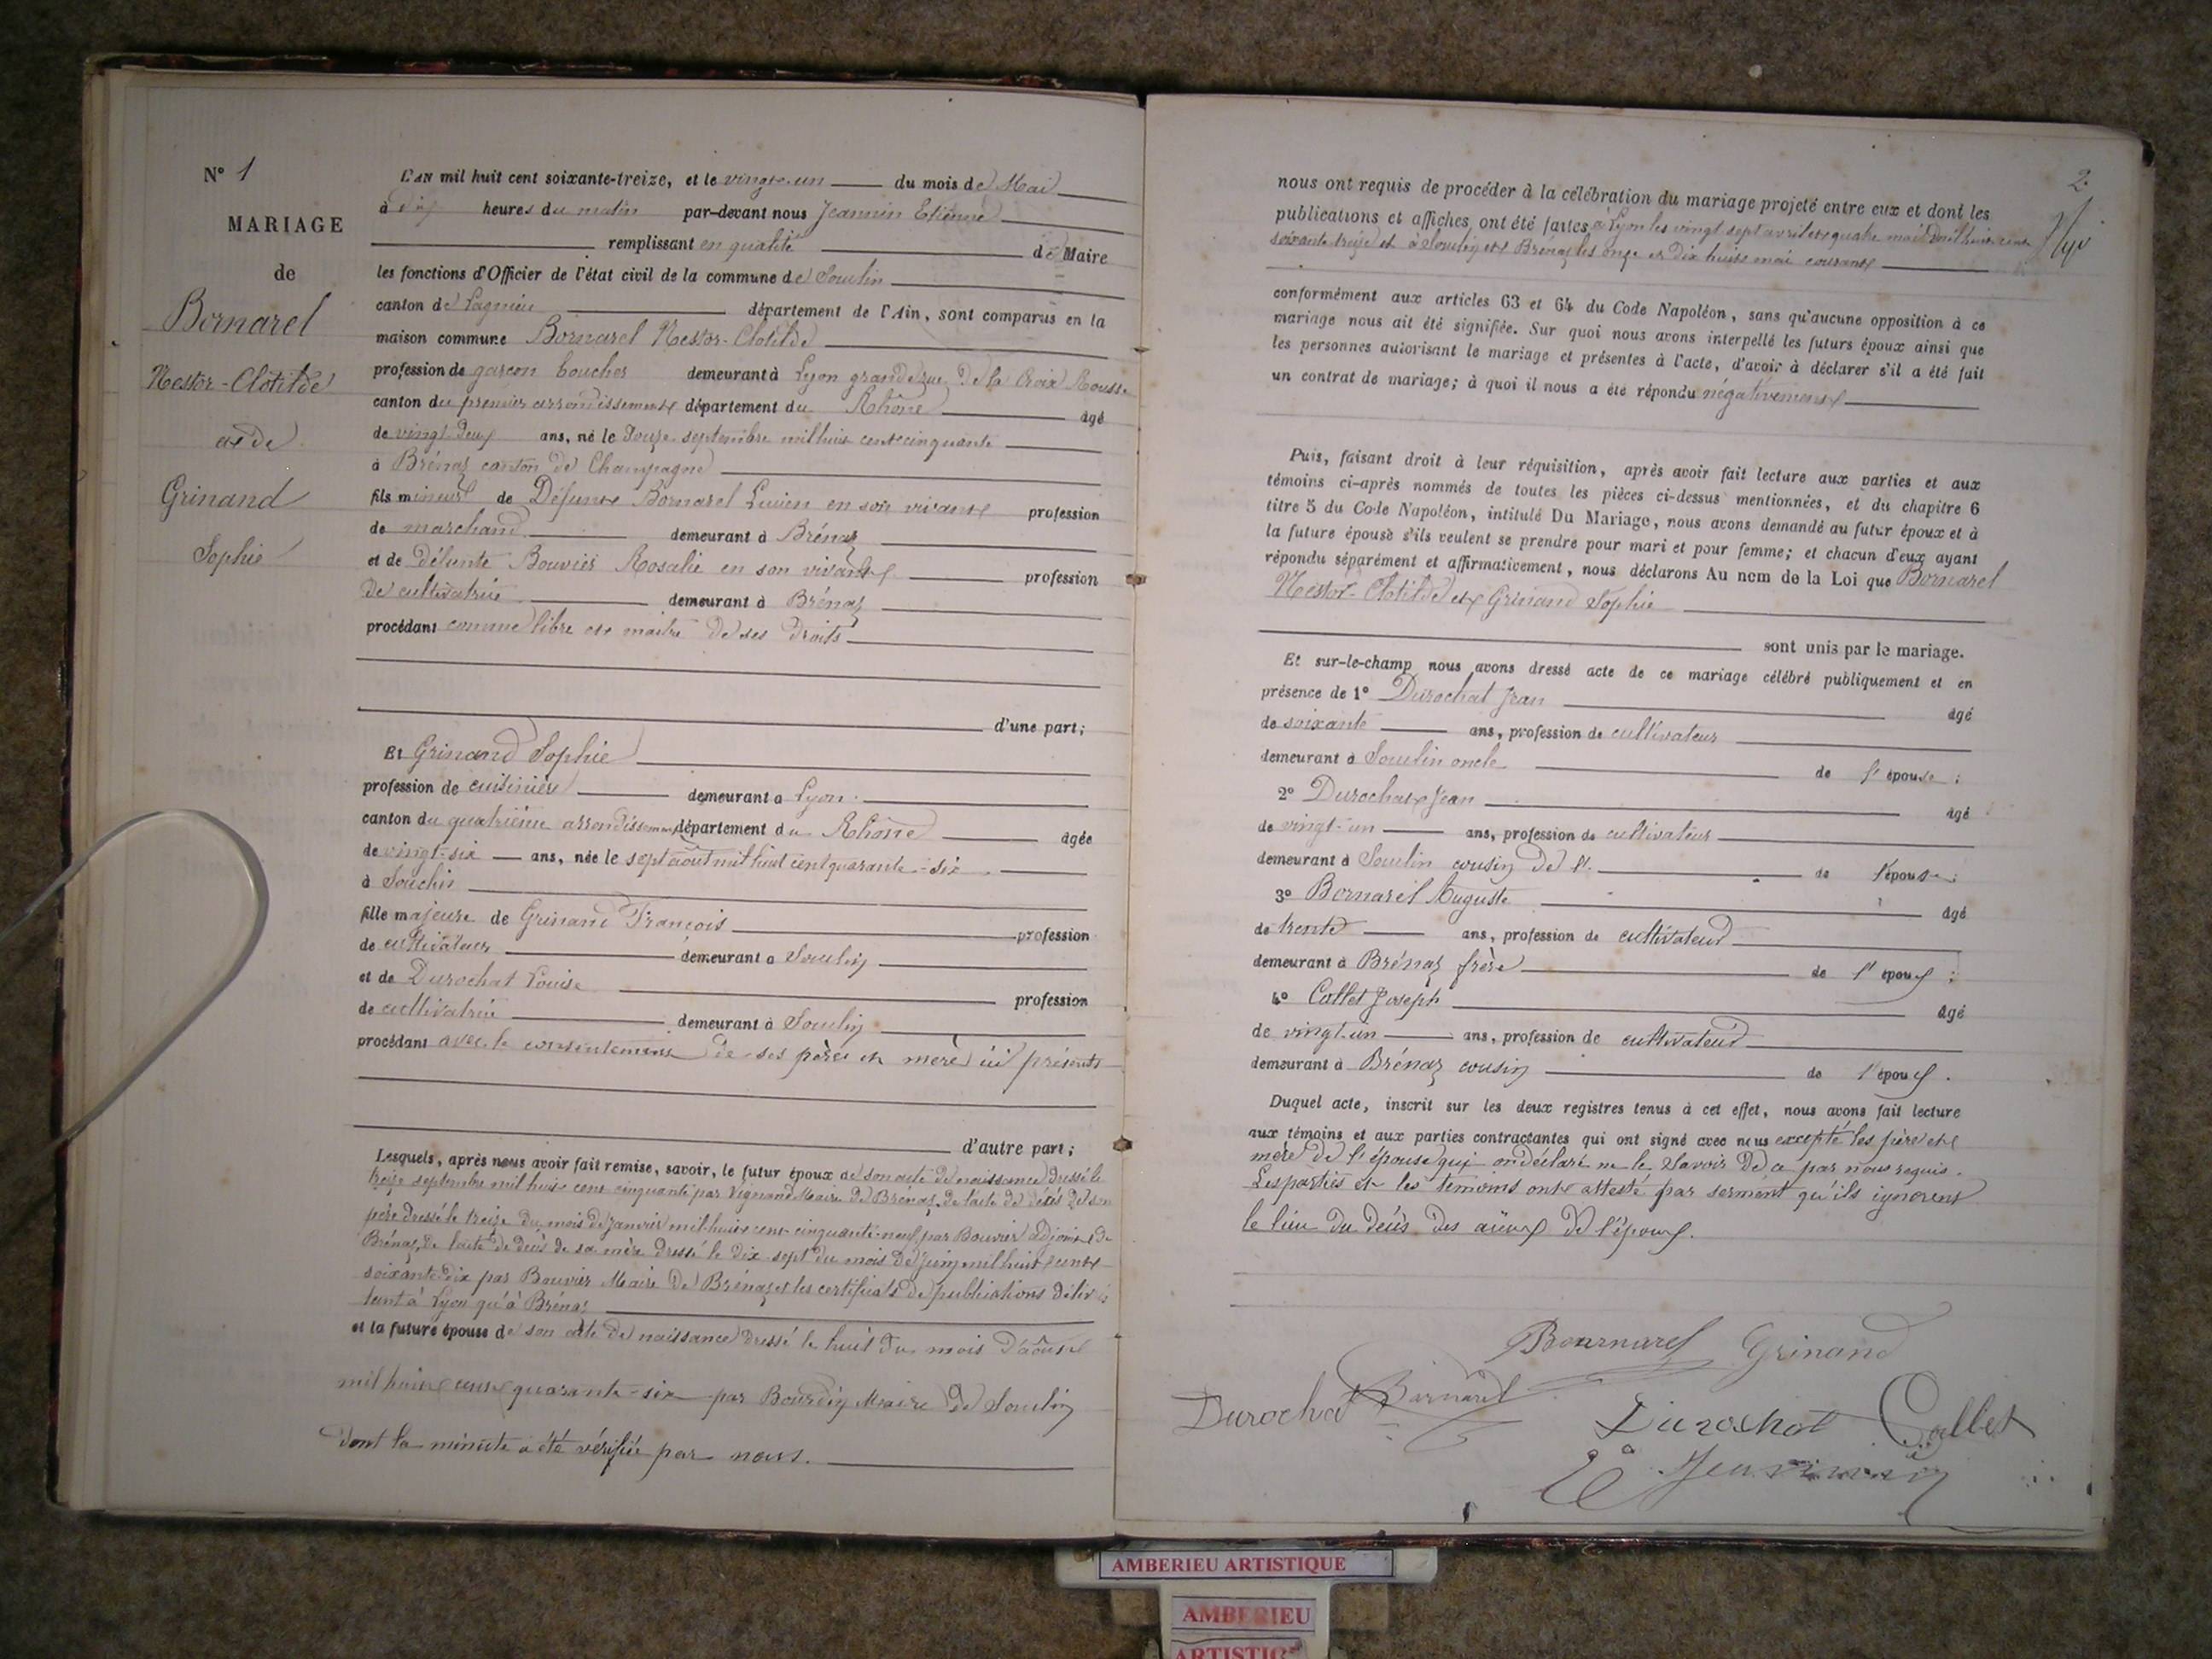 N° 1
MARIAGE
de
Bornarel
Nestor-Clotilde
et de
Grinand
Sophie
L'AN mil huit cent soixante-treize, et le vingt-un du mois de Mai
à dix heures du matin par-devant nous Jeannin Etienne
remplissant en qualité de Maire
les fonctions d'Officier de l'état civil de la commune de Souclin
canton de Lagnieu département de l'Ain, sont comparus en la
maison commune Bornarel Nestor-Clotilde
profession de garçon boucher demeurant à Lyon grande rue de la Croix Rousse
canton du premier arrondissement département du Rhône âgé
de vingt deux ans, né le douze septembre mil huit cent cinquante
à Brénaz canton de Champagne
fils mineur de Défunt Bornarel Lucien en son vivant profession
de marchand demeurant à Brénaz
et de défunte Bouvier Rosalie en son vivant profession
de cultivatrice demeurant à Brénaz
procédant comme libre et maître de ses droits
d'une part;
Et Grinand Sophie
profession de cuisinière demeurant à Lyon
canton du quatrième arrondissement département du Rhône âgée
de vingt-six ans, née le sept août mil huit cent quarante-six
à Souclin
fille majeure de Grinand François profession
de cultivateur demeurant à Souclin
et de Durochat Louise profession
de cultivatrice demeurant à Souclin
procédant avec le consentement de ses père et mère ici présents
d'autre part;
Lesquels, après nous avoir fait remise, savoir, le futur époux de son acte de naissance dressé le
treize septembre mil huit cent cinquante par Vignand Maire de Brénaz, de l'acte de décès de son
père dressé le treize du mois de janvier mil huit cent cinquante-neuf, par Bouvier adjoint de
Brénaz, de l'acte de décès de sa mère dressé le dix-sept du mois de juin mil huit cent
soixante dix par Bouvier Maire de Brénaz et les certificats de publications délivrés
tant à Lyon qu'à Brénaz
et la future épouse de son acte de naissance dressé le huit du mois d'août
mil huit cent quarante-six par Bourdin Maire de Souclin
dont la minute a été vérifiée par nous.
2
nous ont requis de procéder à la célébration du mariage projeté entre eux et dont les
publications et affiches ont été faites à Lyon les vingt sept avril et quatre mai mil huit cent
soixante treize et à Souclin et Brénaz les onze et dix huit mai courant
conformément aux articles 63 et 64 du Code Napoléon, sans qu'aucune opposition à ce
mariage nous ait été signifiée. Sur quoi nous avons interpellé les futurs époux ainsi que
les personnes autorisant le mariage et présentes à l'acte, d'avoir à déclarer s'il a été fait
un contrat de mariage; à quoi il nous a été répondu négativement
Puis, faisant droit à leur réquisition, après avoir fait lecture aux parties et aux
témoins ci-après nommés de toutes les pièces ci-dessus mentionnées, et du chapitre 6
titre 5 du Code Napoléon, intitulé Du Mariage, nous avons demandé au futur époux et à
la future épouse s'ils veulent se prendre pour mari et pour femme; et chacun d'eux ayant
répondu séparément et affirmativement, nous déclarons Au nom de la Loi que Bornarel
Nestor-Clotilde et Grinand Sophie
sont unis par le mariage.
Et sur-le-champ nous avons dressé acte de ce mariage célébré publiquement et en
présence de 1° Durochat Jean âgé
de soixante ans, profession de cultivateur
demeurant à Souclin oncle de l'épouse;
2° Durochat Jean âgé
de vingt-un ans, profession de cultivateur
demeurant à Souclin cousin de l' de l'épouse;
3° Bornarel Auguste âgé
de trente ans, profession de cultivateur
demeurant à Brénaz frère de l'époux;
4° Collet Joseph âgé
de vingt-un ans, profession de cultivateur
demeurant à Brénaz cousin de l'époux.
Duquel acte, inscrit sur les deux registres tenus à cet effet, nous avons fait lecture
aux témoins et aux parties contractantes qui ont signé avec nous excepté les père et
mère de l'épouse qui ont déclaré ne le savoir de ce par nous requis.
Les parties et les témoins ont attesté par serment qu'ils ignorent
le lieu du décès des aïeux de l'époux.
Bournarel Grinand
Durochat Barnarel Durochat Collet
E Jeannin
AMBERIEU ARTISTIQUE
AMBERIEU
ARTISTIQUE